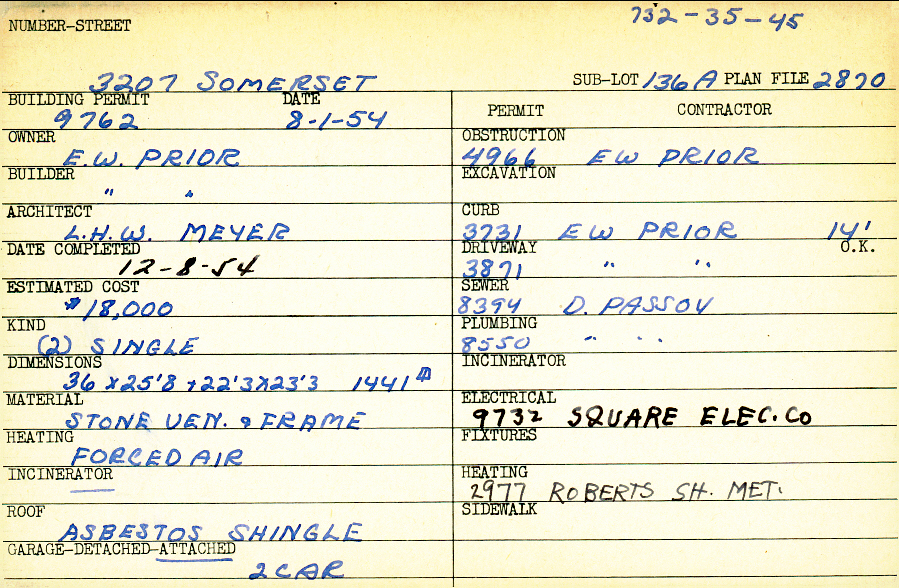 732-35-45
NUMBER-STREET
3207 SOMERSET SUB-LOT 136A PLAN FILE 2870
BUILDING PERMIT DATE
9762 8-1-54
OWNER
E.W. PRIOR
BUILDER
" "
ARCHITECT
L.H.W. MEYER
DATE COMPLETED
12-8-54
ESTIMATED COST
$18,000
KIND
(2) SINGLE
DIMENSIONS
36 x 25'8 + 22'3 x 23'3 1441
MATERIAL
STONE VEN. & FRAME
HEATING
FORCED AIR
INCINERATOR
ROOF
ASBESTOS SHINGLE
GARAGE-DETACHED-ATTACHED
2 CAR
PERMIT CONTRACTOR
OBSTRUCTION
4966 EW PRIOR
EXCAVATION
CURB
3731 EW PRIOR 14'
DRIVEWAY O.K.
3871 " "
SEWER
8394 D. PASSOV
PLUMBING
8550 " "
INCINERATOR
ELECTRICAL
9732 SQUARE ELEC. CO
FIXTURES
HEATING
2977 ROBERTS SH. MET.
SIDEWALK